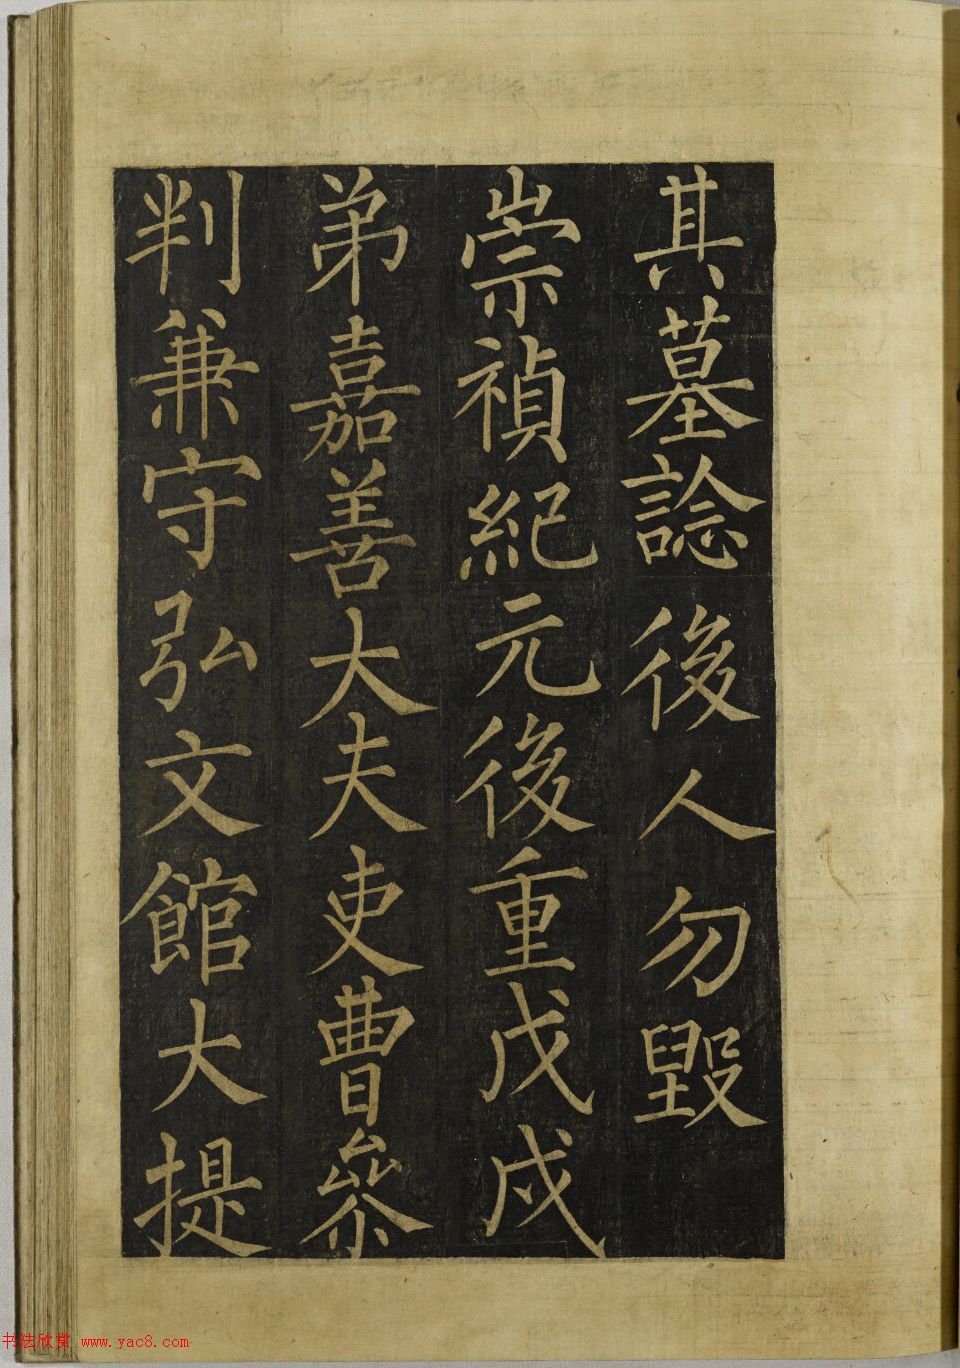 其墓諗後人勿毀
崇禎紀元後重戊戌
弟嘉善大夫吏曹參
判兼守弘文館大提
书法欣赏 www.yac8.com